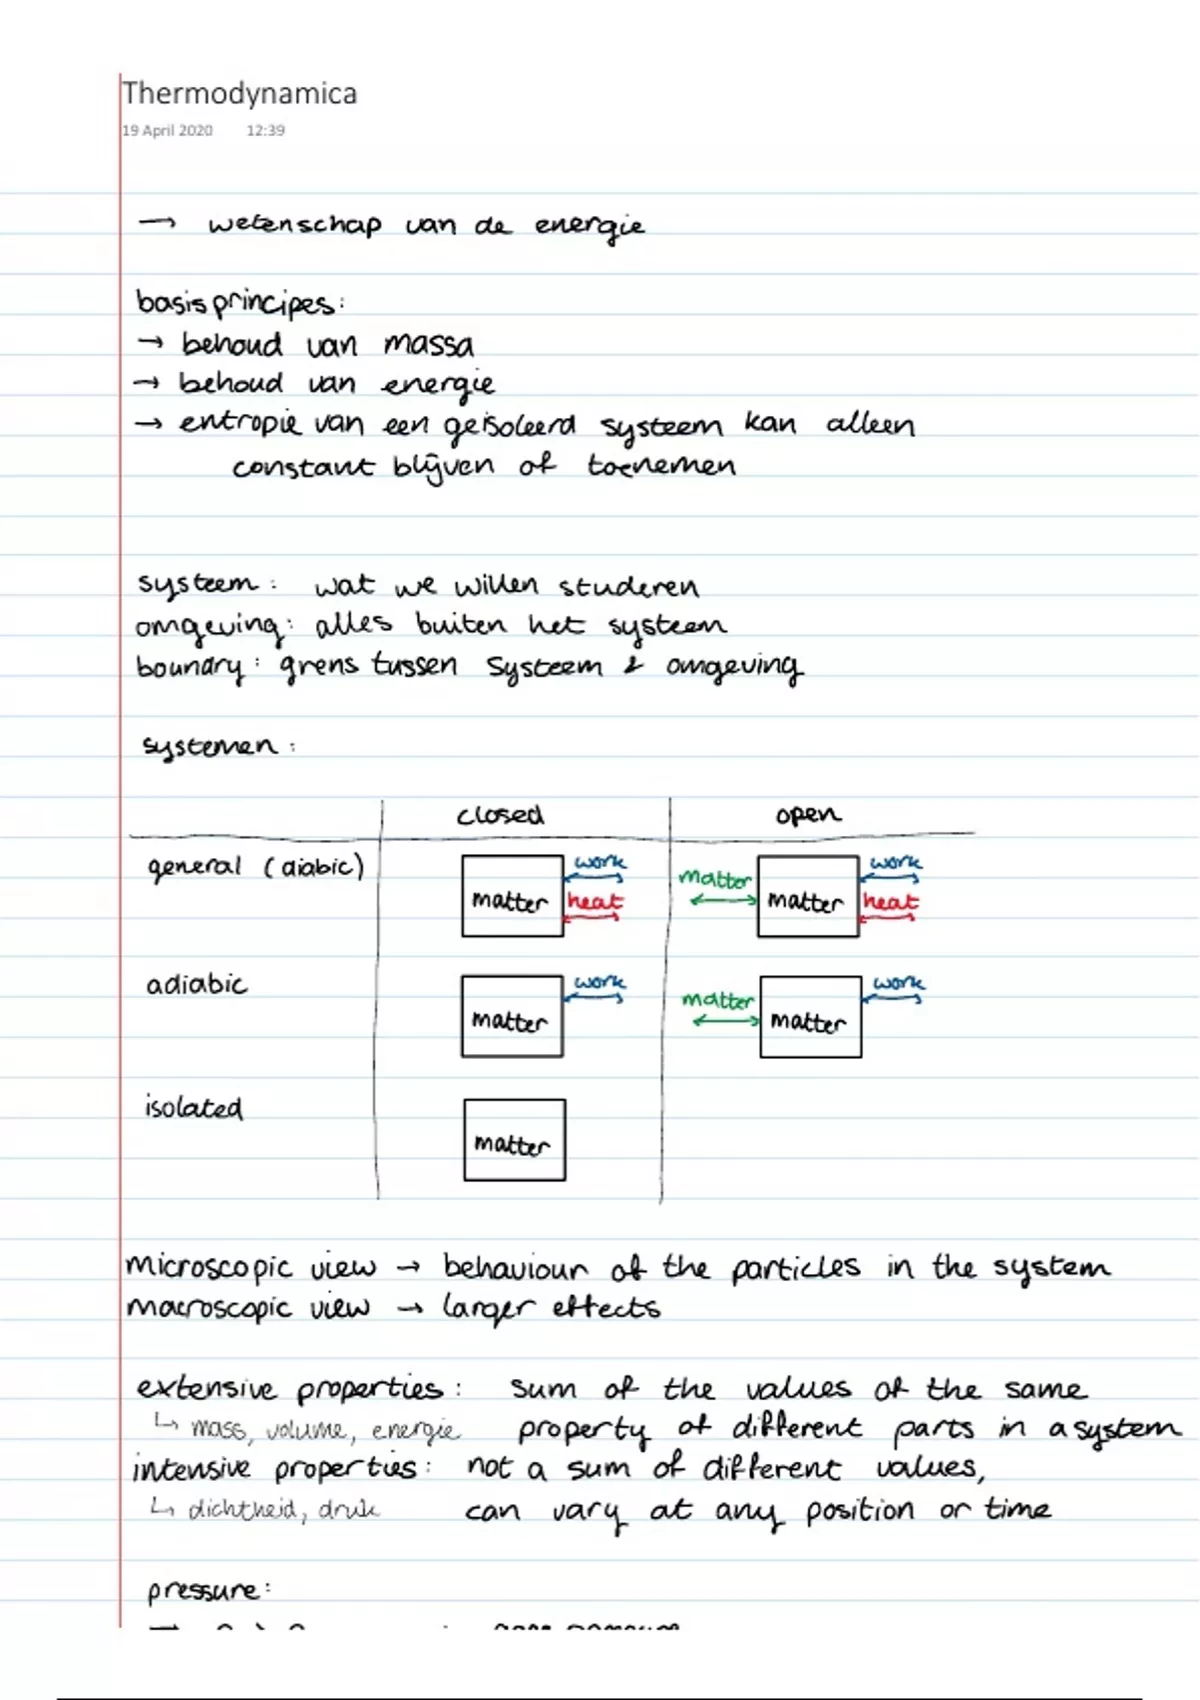 Thermodynamica
19 April 2020 12:39
→ wetenschap van de energie
basisprincipes:
→ behoud van massa
→ behoud van energie
→ entropie van een geïsoleerd systeem kan alleen
constant blijven of toenemen
systeem: wat we willen studeren
omgeving: alles buiten het systeem
boundry: grens tussen systeem & omgeving
systemen:
closed open
general (diabic) matter work heat matter matter work heat
adiabic matter work matter matter work
isolated matter
microscopic view → behaviour of the particles in the system
macroscopic view → larger effects
extensive properties: sum of the values of the same
↳ mass, volume, energie property of different parts in a system
intensive properties: not a sum of different values,
↳ dichtheid, druk can vary at any position or time
pressure: